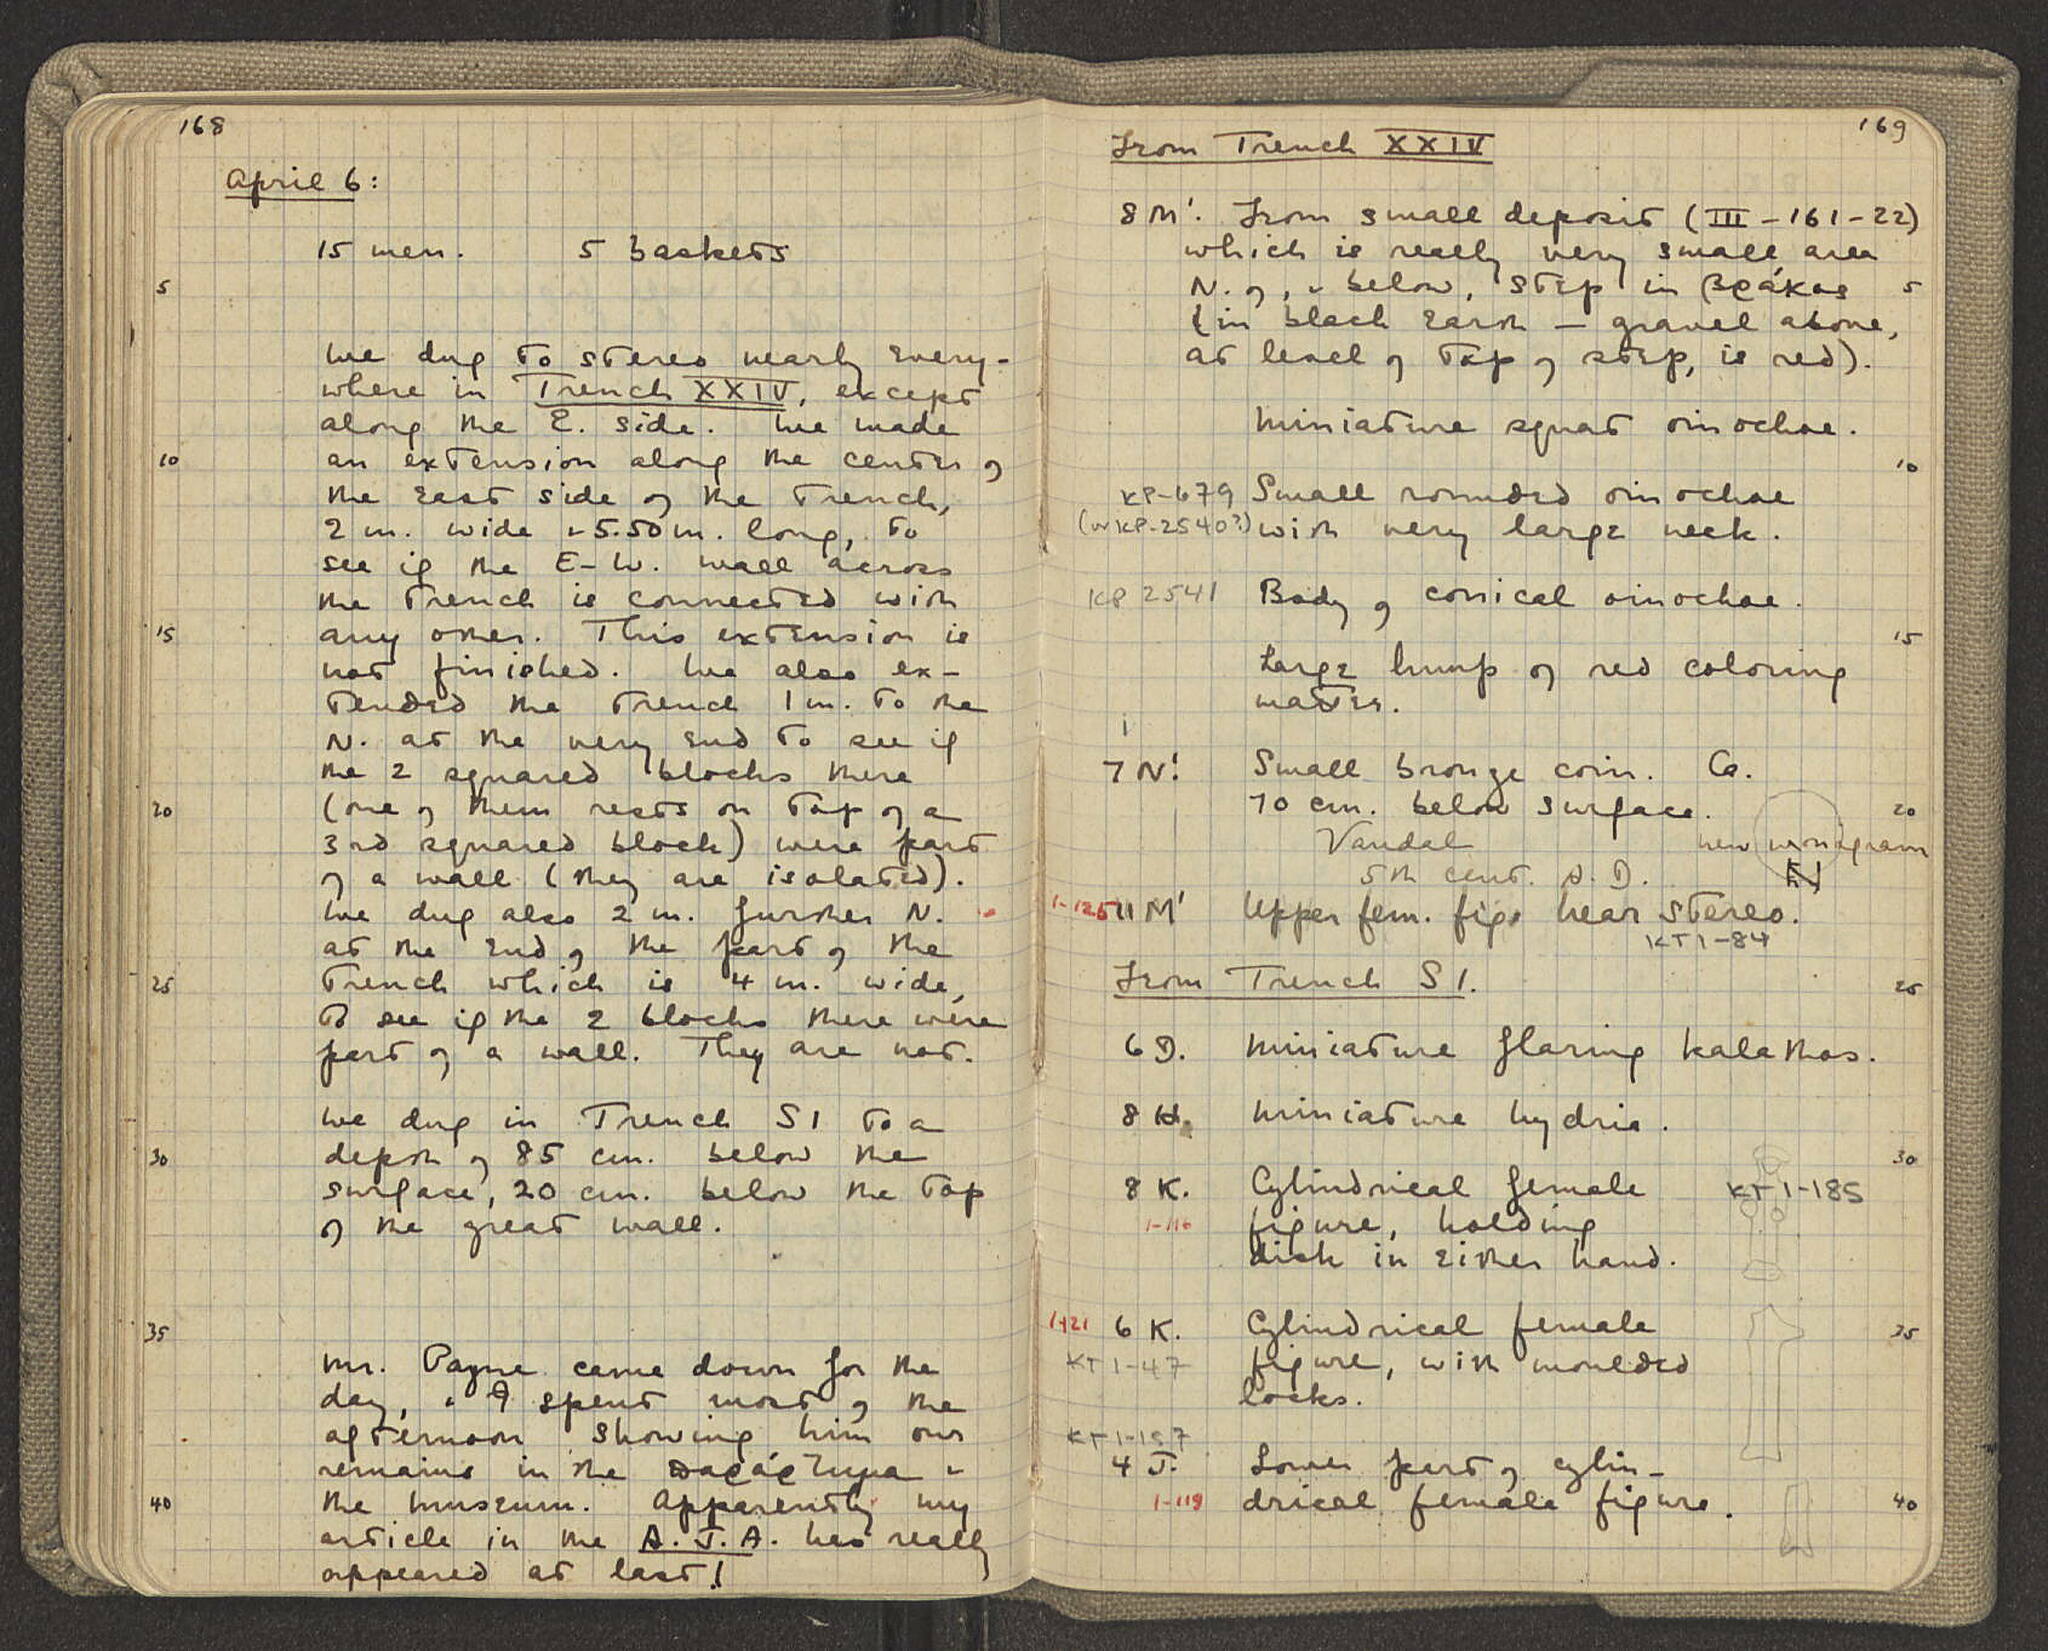 168
April 6:
15 men. 5 baskets
5
We dug to stereo nearly every-
where in Trench XXIV, except
along the E. side. We made
10 an extension along the center of
the East side of the trench,
2 m. wide & 5.50 m. long, to
see if the E-W. wall across
the trench is connected with
15 any other. This extension is
not finished. We also ex-
tended the trench 1 m. to the
N. at the very end to see if
the 2 squared blocks there
20 (one of them rests on top of a
3rd squared block) were part
of a wall (they are isolated).
We dug also 2 m. further N.
at the end of the part of the
25 trench which is 4 m. wide,
to see if the 2 blocks there were
part of a wall. They are not.
We dug in Trench S1 to a
30 depth of 85 cm. below the
surface, 20 cm. below the top
of the great wall.
35
Mr. Payne came down for the
day, & I spent most of the
afternoon showing him our
remains in the &
40 the museum. Apparently my
article in the A.J.A. has really
appeared at last!
169
From Trench XXIV
8 M'. From small deposit (III-161-22)
which is really very small area
N. of, & below, step in βράχος 5
(in black earth — gravel above,
at level of top of step, is red).
Miniature squat oinochoe.
10
KP-679 Small rounded oinochoe
(or KP-2540?) with very large neck.
KP 2541 Body of conical oinochoe.
15
Large lump of red coloring
matter.
7 N! Small bronze coin. Ca.
70 cm. below surface. 20
Vandal new monogram
5th cent. A.D.
1-125 11 M' Upper fem. fig. near stereo.
KT1-84
From Trench S1. 25
6 D. Miniature flaring kalathos.
8 H. Miniature hydria.
30
8 K. Cylindrical female KT1-185
1-116 figure, holding
disk in either hand.
1-121 6 K. Cylindrical female 35
KT1-47 figure, with moulded
locks.
KT1-157
4 J. Lower part of cylin-
1-119 drical female figure. 40